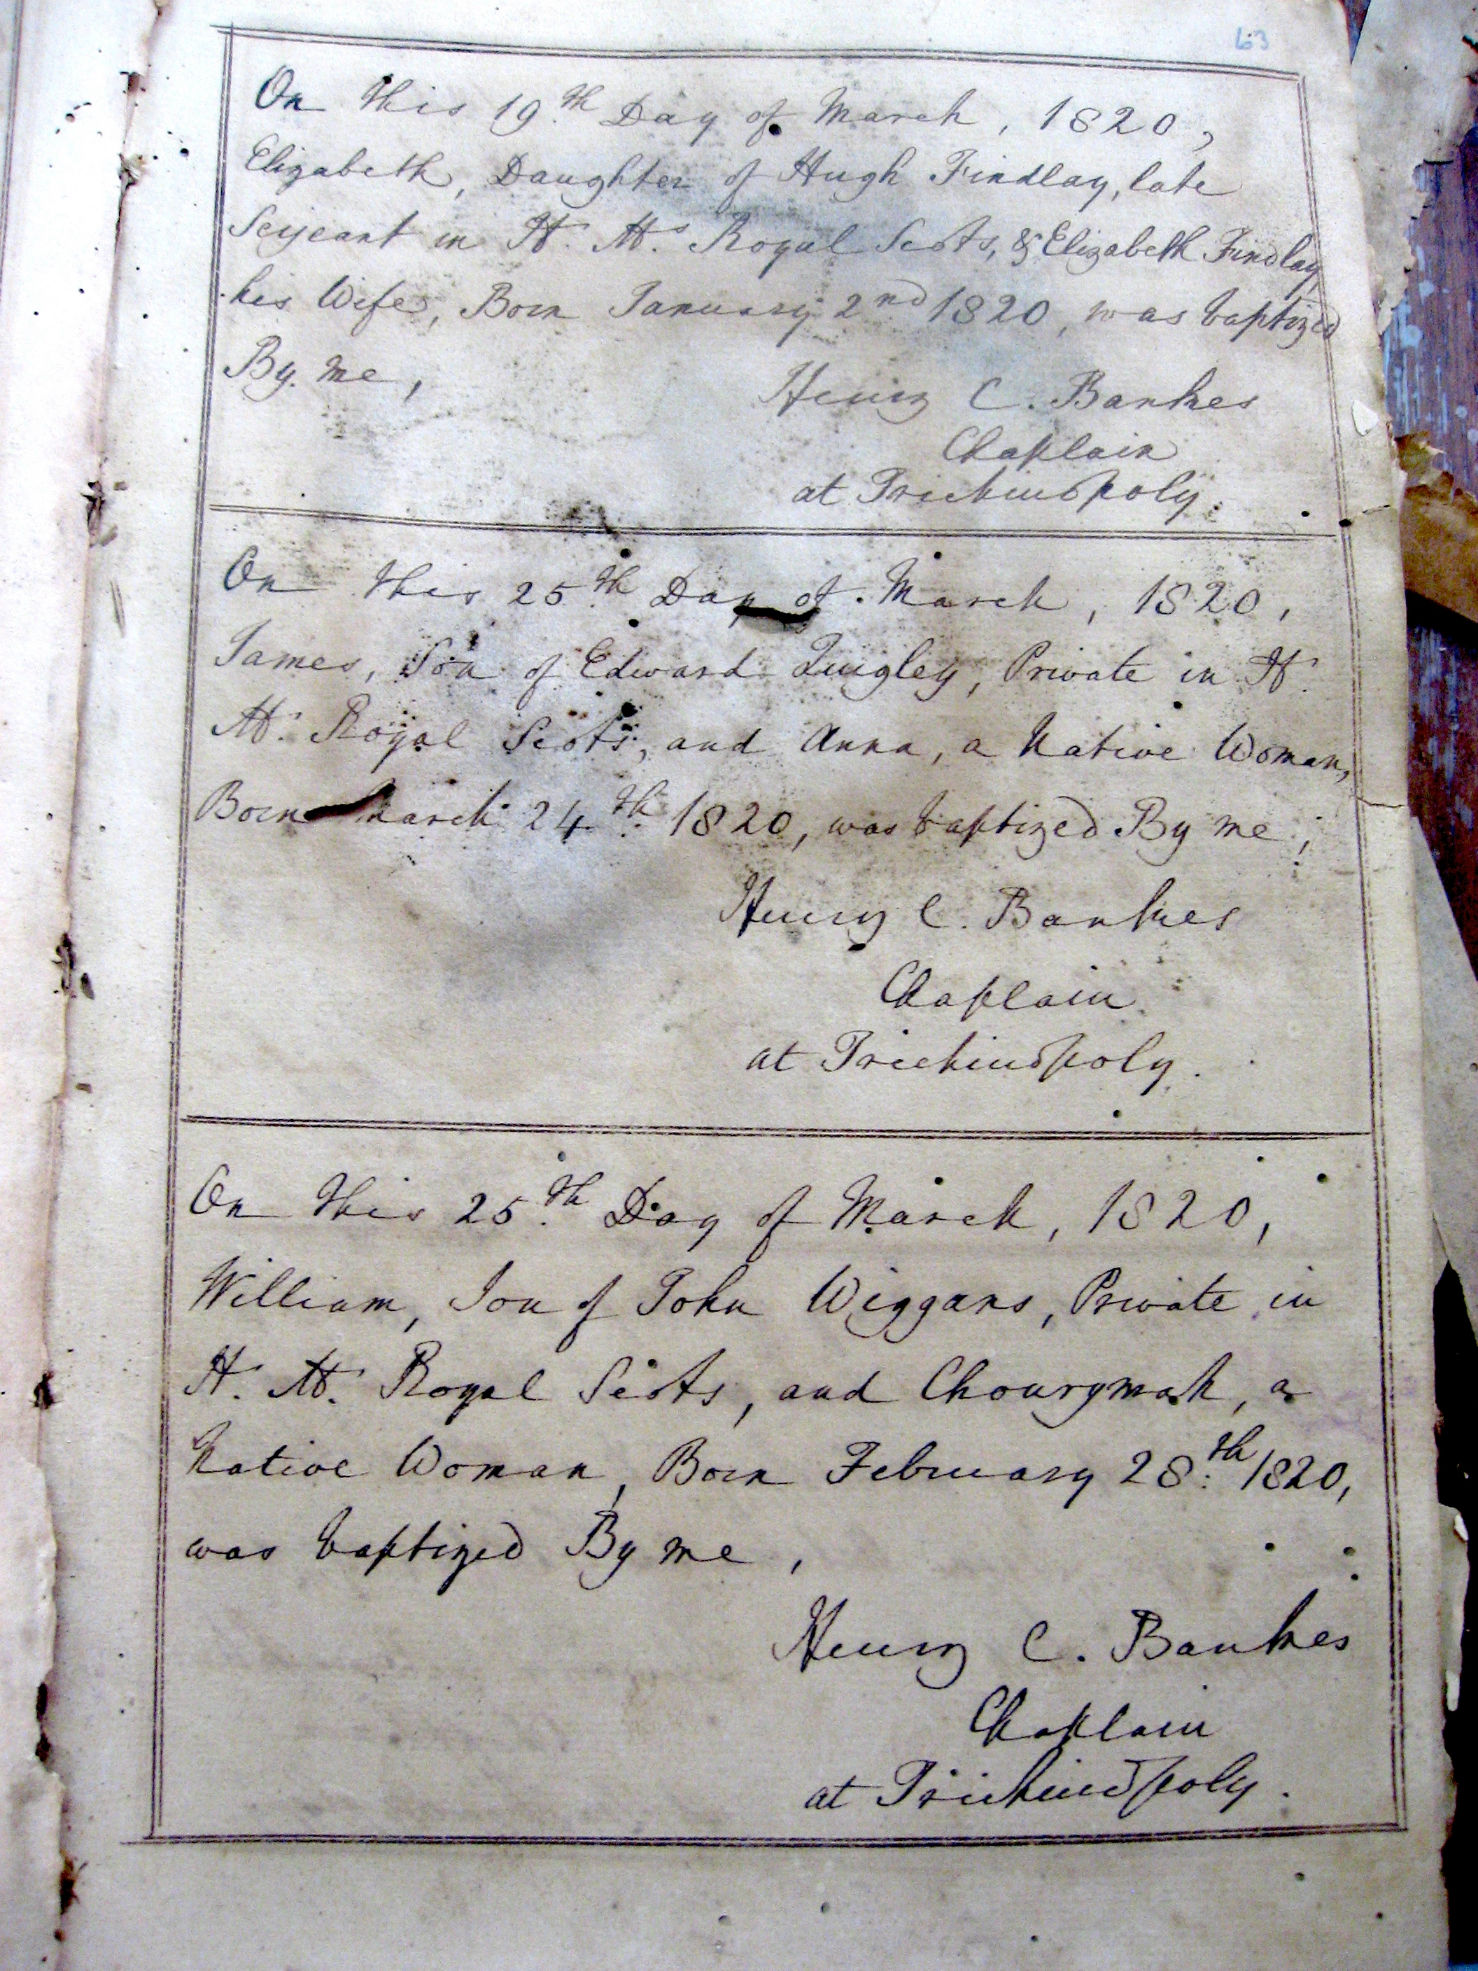 63
On this 19th Day of March, 1820,
Elizabeth, Daughter of Hugh Findlay, late
Serjeant in H. M.s Royal Scots, & Elizabeth Findlay
his Wife, Born January 2nd 1820, was baptized
By me,
Henry C. Bankes
Chaplain
at Trichinopoly.
On this 25th Day of March, 1820,
James, Son of Edward Quigley, Private in H.
M. Royal Scots, and Anna, a Native Woman,
Born March 24th 1820, was baptized By me,
Henry C. Bankes
Chaplain
at Trichinopoly.
On this 25th Day of March, 1820,
William, Son of John Wiggans, Private in
H. M. Royal Scots, and Chourymah, a
Native Woman, Born February 28th 1820,
was baptized By me,
Henry C. Bankes
Chaplain
at Trichinopoly.